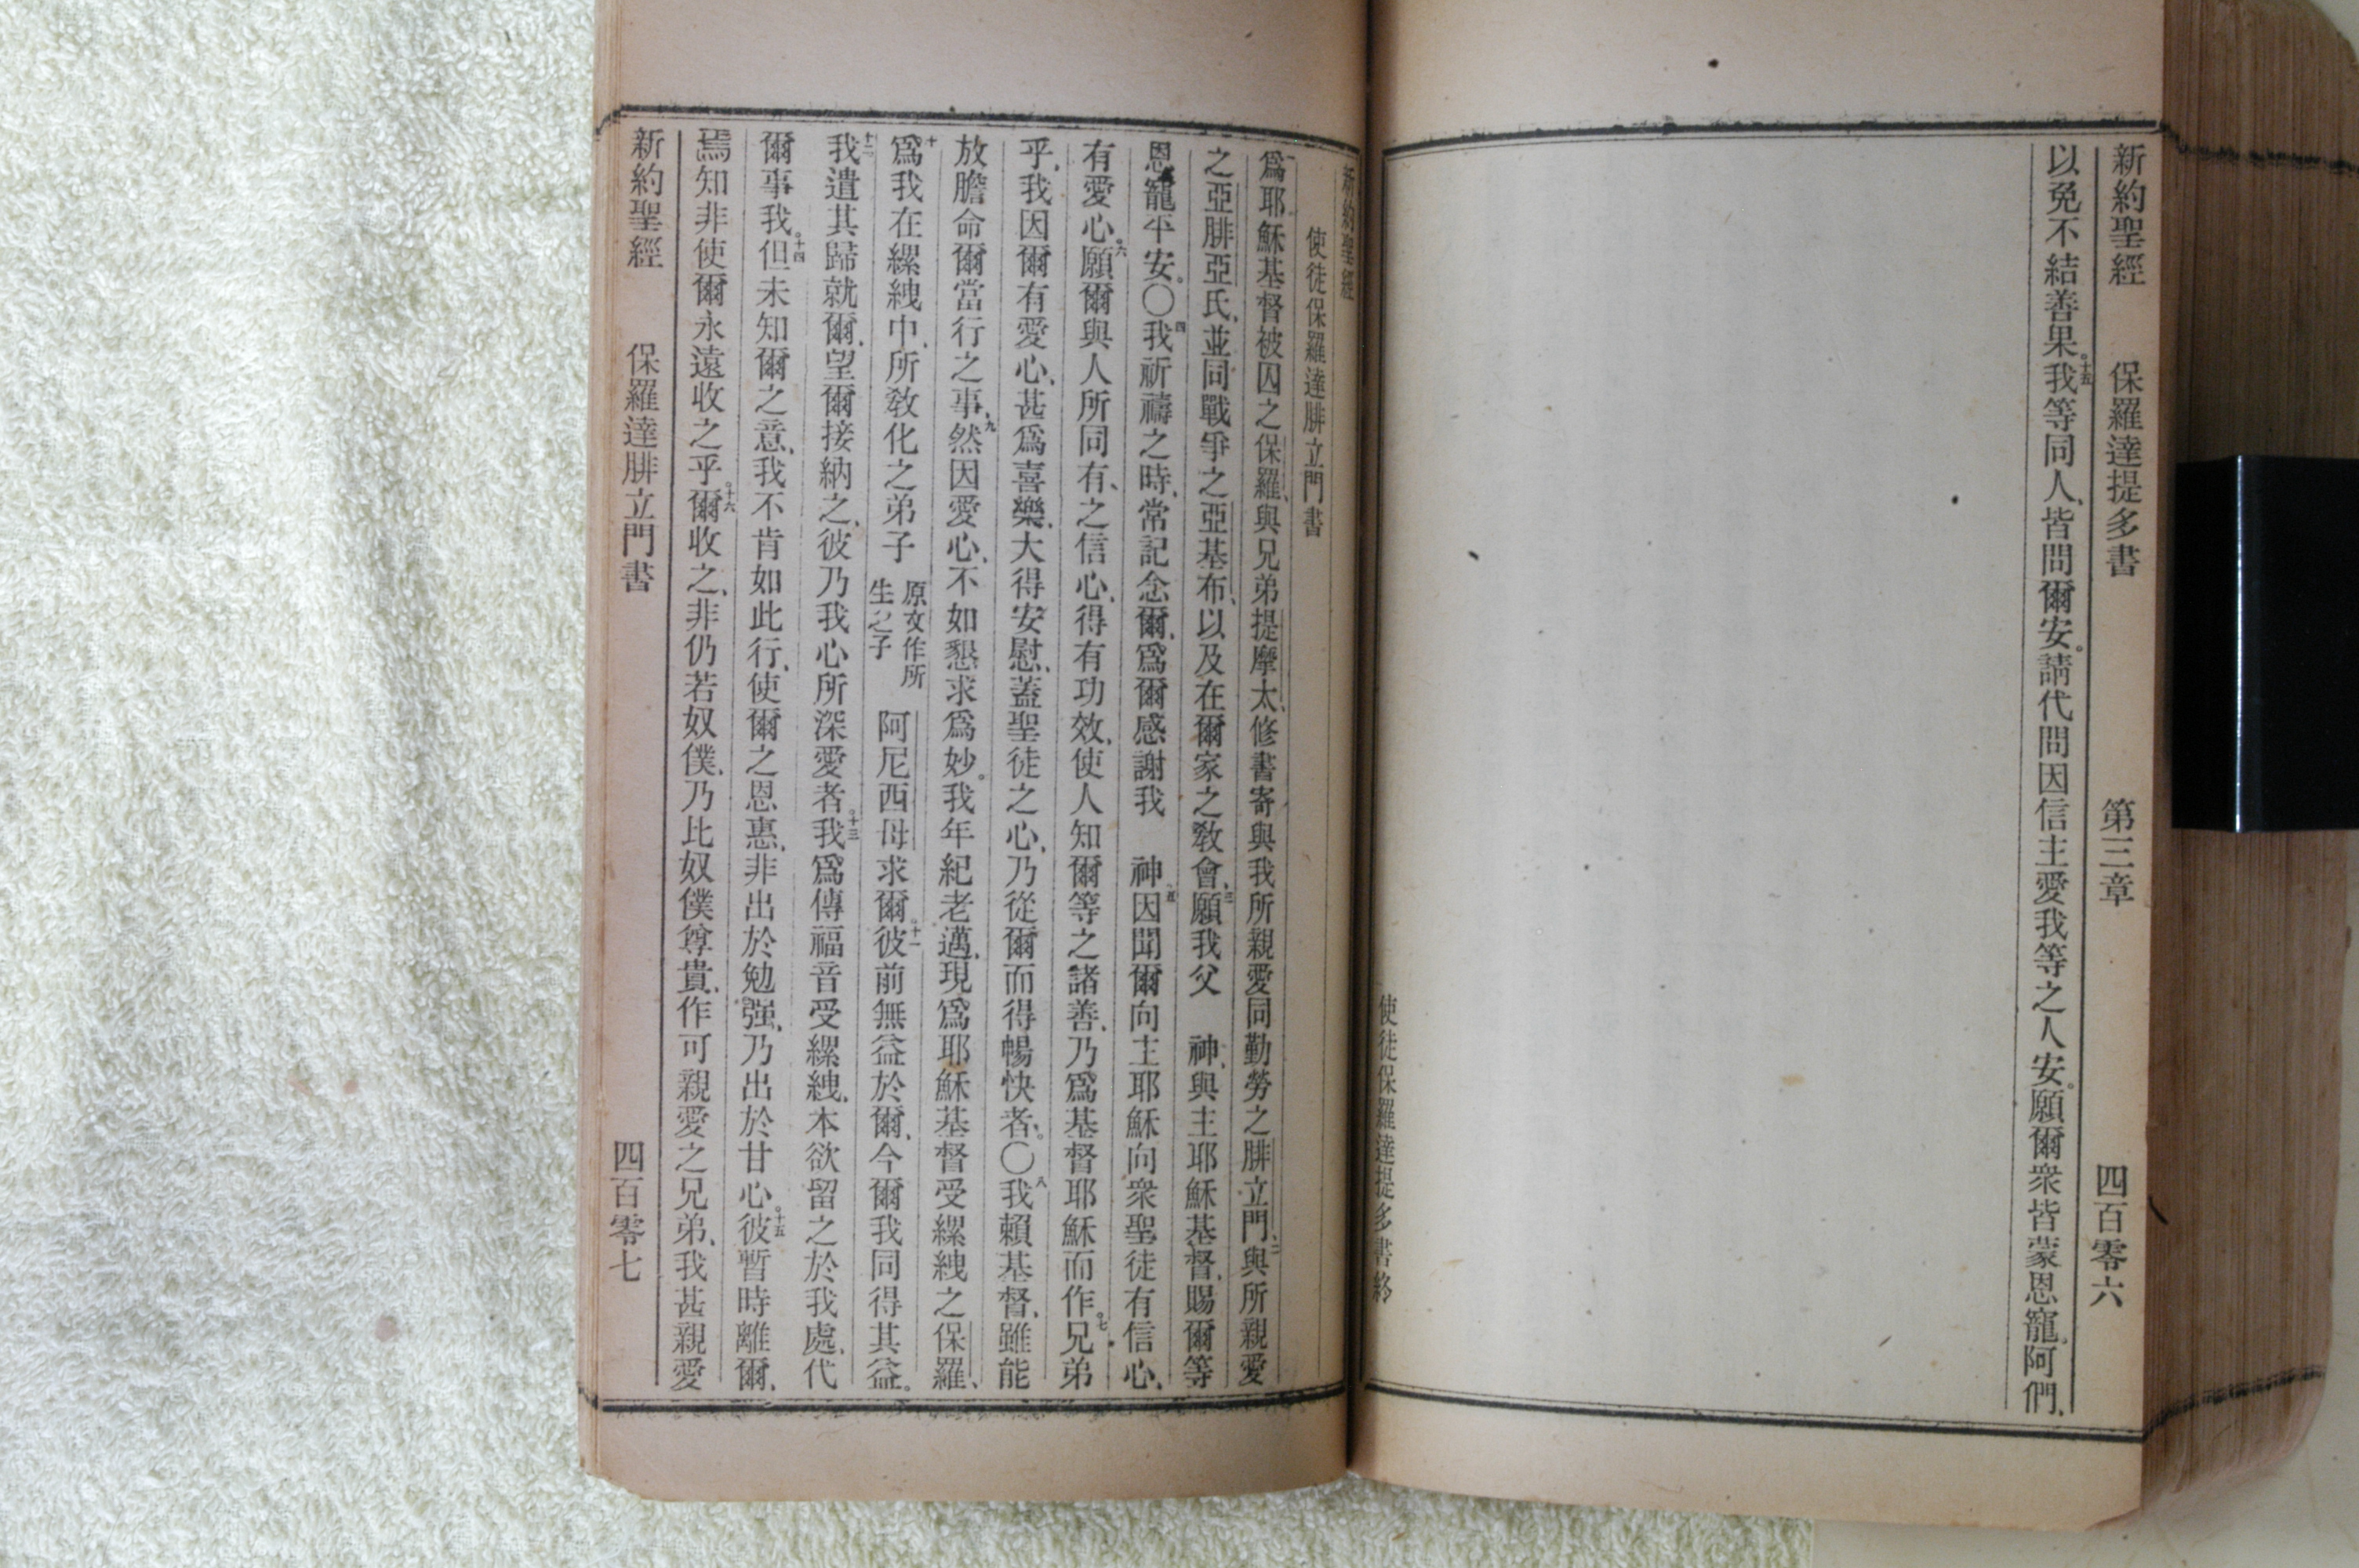 新約聖經 保羅達提多書 第三章 四百零六
以免不結善果。十五我等同人、皆問爾安。請代問因信主愛我等之人安。願爾衆皆蒙恩寵。阿們、
使徒保羅達提多書終
新約聖經
使徒保羅達腓立門書
一爲耶穌基督被囚之保羅、與兄弟提摩太、修書寄與我所親愛同勤勞之腓立門、二與所親愛
之亞腓亞氏、並同戰爭之亞基布、以及在爾家之教會、三願我父 神、與主耶穌基督、賜爾等
恩寵平安。〇四我祈禱之時、常記念爾、爲爾感謝我 神五因聞爾向主耶穌向衆聖徒有信心、
有愛心。六願爾與人所同有、之信心、得有功效、使人知爾等之諸善、乃爲基督耶穌而作。七兄弟
乎、我因爾有愛心、甚爲喜樂、大得安慰、蓋聖徒之心、乃從爾而得暢快者。〇八我賴基督、雖能
放膽命爾當行之事、九然因愛心、不如懇求爲妙。我年紀老邁、現爲耶穌基督受縲絏之保羅、
十爲我在縲絏中、所教化之弟子 原文作所生之子 阿尼西母求爾。十一彼前無益於爾、今爾我同得其益。
十二我遣其歸就爾、望爾接納之、彼乃我心所深愛者。十三我爲傳福音受縲絏、本欲留之於我處、代
爾事我。十四但未知爾之意、我不肯如此行、使爾之恩惠、非出於勉强、乃出於甘心。十五彼暫時離爾、
焉知非使爾永遠收之乎。十六爾收之、非仍若奴僕、乃比奴僕尊貴、作可親愛之兄弟、我甚親愛
新約聖經 保羅達腓立門書 四百零七